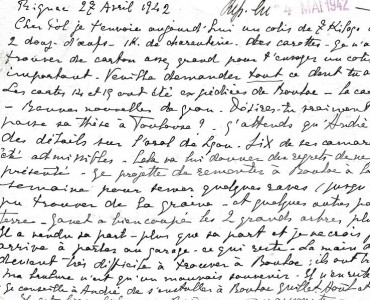 Peignac 27 Avril 1942 Rep. le 4 MAI 1942
Cher Pol je t'envoie aujourd'hui un colis de 7 Kilogs
2 douz. d'œufs - 1K. de charcuterie. Des carottes - Je n'ai
trouver de carton assez grand pour t'envoyer un colis
important. Veuille demander tout ce dont tu a
Les cartes 14 et 15 ont été expédiées de Bouloc - la ca
- Bonnes nouvelles de Désires-tu vraiment
passe sa thèse à Toulouse ? J'attends qu'André
des détails sur l'oral de Lyon. Six de ses camara
été admissibles. Cela va lui donner des regrets de ne
présenté - Je projette de remonter à Bouloc à l
semaine pour semer quelques raves (jusqu
pu trouver de la graine - et quelques autres po
terre - a bien coupé les 2 grands arbres, plus
Il a vendu sa part - plus que sa part et je crois
arrive à partes au garage - ce qui reste - La main d
devient très difficile à trouver à Bouloc ; ils ont
ma n'est qu'un mauvais souvenir - Il
Je conseille à André de s'installer à Bouloc Juillet Août et